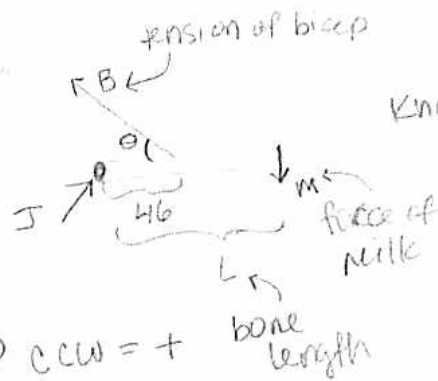 tension of bicep
B
θ
Kn
J
46
m
force of
milk
L
CCW = +
bone
length